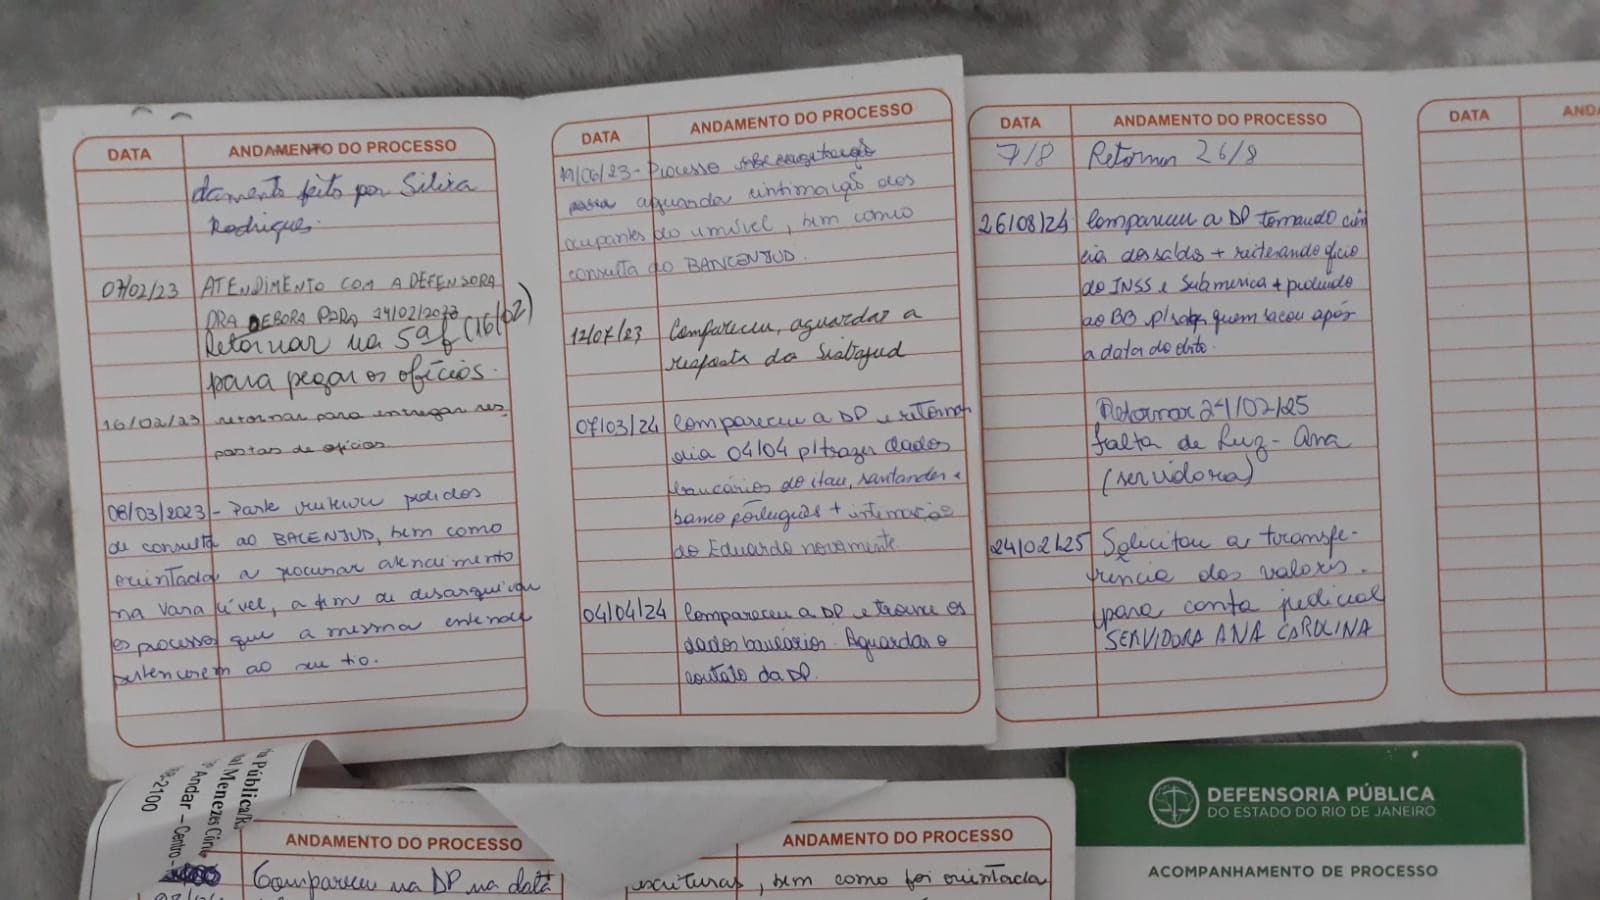 DATA ANDAMENTO DO PROCESSO
damento feito por Silvia
Rodrigues.
07/02/23 ATENDIMENTO COM A DEFENSORA
DRA DEBORA PARA
Retornar na 5ªf (16/02)
para pegar os ofícios.
16/02/23 retornar para entregar res-
postas de ofícios
08/03/2023 - Parte pedidos
de consulta ao BACENJUD, bem como
orientada a procurar atendimento
na Vara Cível, a fim de desarquivar
os processos que a mesma entende
pertencerem ao seu tio.
DATA ANDAMENTO DO PROCESSO
/06/23 - Processo
aguardar intimação dos
ocupantes do imóvel, bem como
consulta do BANCENJUD.
12/07/23 Compareceu, aguardar a
resposta do
07/03/24 Compareceu a DP e retornar
dia 04/04 p/ trazer dados
bancários do itau, santander e
banco português + intimação
do Eduardo novamente
04/04/24 Compareceu a DP e trouxe os
dados bancários. Aguardar o
contato da DP.
DATA ANDAMENTO DO PROCESSO
7/8 Retornar 26/8
26/08/24 Compareceu a DP tomando ciên
cia dos saldos + reiterando ofício
do INSS e + pedindo
ao BB p/ saber quem sacou após
a data do óbito.
Retornar 24/02/25
falta de Luz - Ana
(servidora)
24/02/25 Solicitou a transfe-
rência dos valores.
para conta judicial
SERVIDORA ANA CAROLINA
DATA
AND
Pública/R
Menezes Côr
Andar – Centro -
-2100
ANDAMENTO DO PROCESSO
Compareceu na DP na data
ANDAMENTO DO PROCESSO
escrituras, bem como foi orientada
DEFENSORIA PÚBLICA
DO ESTADO DO RIO DE JANEIRO
ACOMPANHAMENTO DE PROCESSO